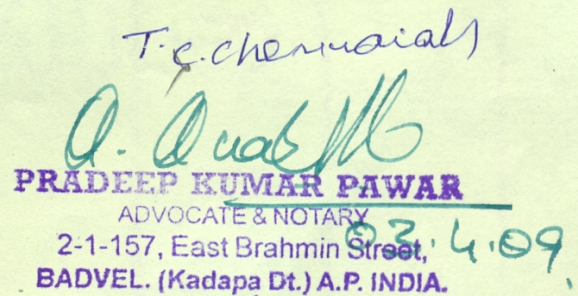 T.C.Chennaiah
PRADEEP KUMAR PAWAR
ADVOCATE & NOTARY
2-1-157, East Brahmin Street,
03.4.09.
BADVEL. (Kadapa Dt.) A.P. INDIA.